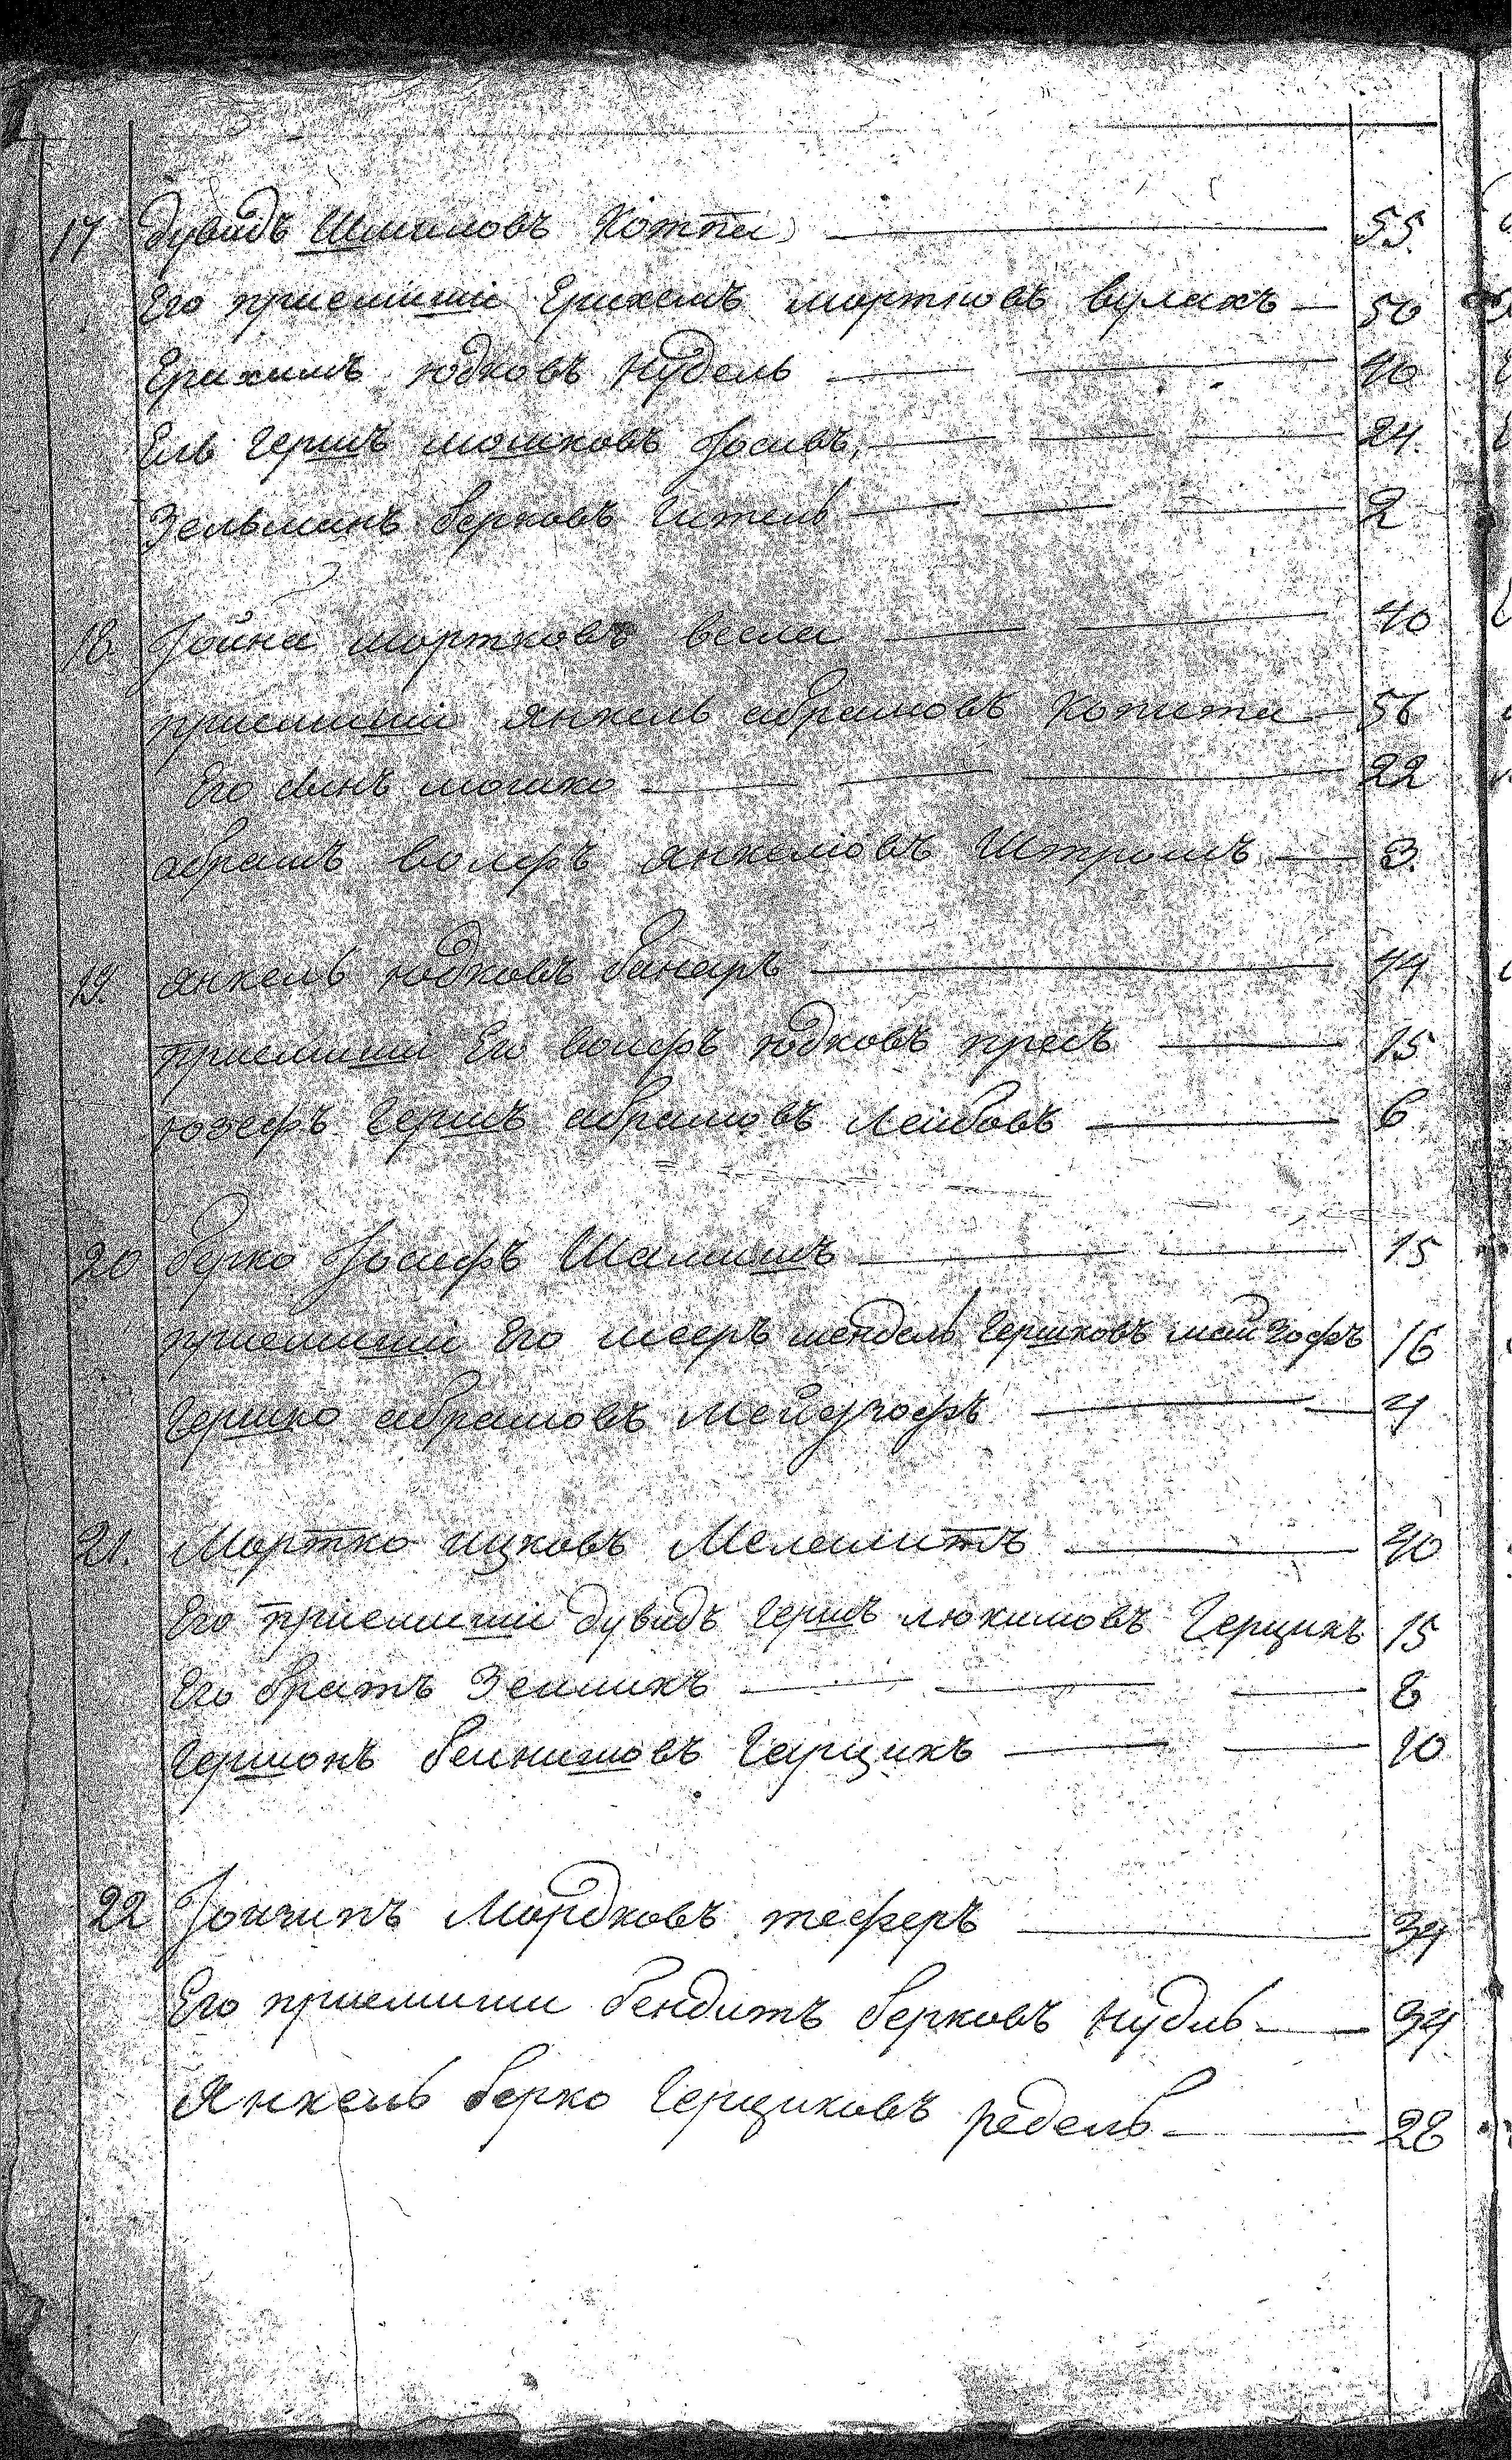 17 Дувидъ Шмиловъ Коппа 55
Его приемыши Ерихемъ мортковъ вулахъ 50
Ерихимъ юдковъ Нудель 40
Ель Гершъ мошковъ Иосивъ 24
Зельманъ берковъ Гитель 2
18 Іойна мортковъ весла 40
приемыши янкель абрамовъ Копита 56
Его сынъ мошко 22
абрамъ волфъ янкеліовъ Штромъ 3
19 янкель юдковъ бинаръ 44
приемыши Его волфъ юдковъ пресъ 15
юзефъ Гершъ абрамовъ Лейбовъ 6
20 берко Іосифъ Шамишъ 15
приемыши Его мееръ мендель Гершковъ майгофъ 16
Гершко абрамовъ Мейдгофъ 4
21. Мортко ицковъ Меламитъ 40
Его приемыши дувидъ Гершъ нюхимовъ Герцикъ 15
Его братъ Зелликъ 8
Гершонъ бенишовъ Герцикъ 10
22 Мордковъ теферъ 34
Его приемыши бендитъ берковъ нудль 34
Янкель берко Герциковъ редель 28